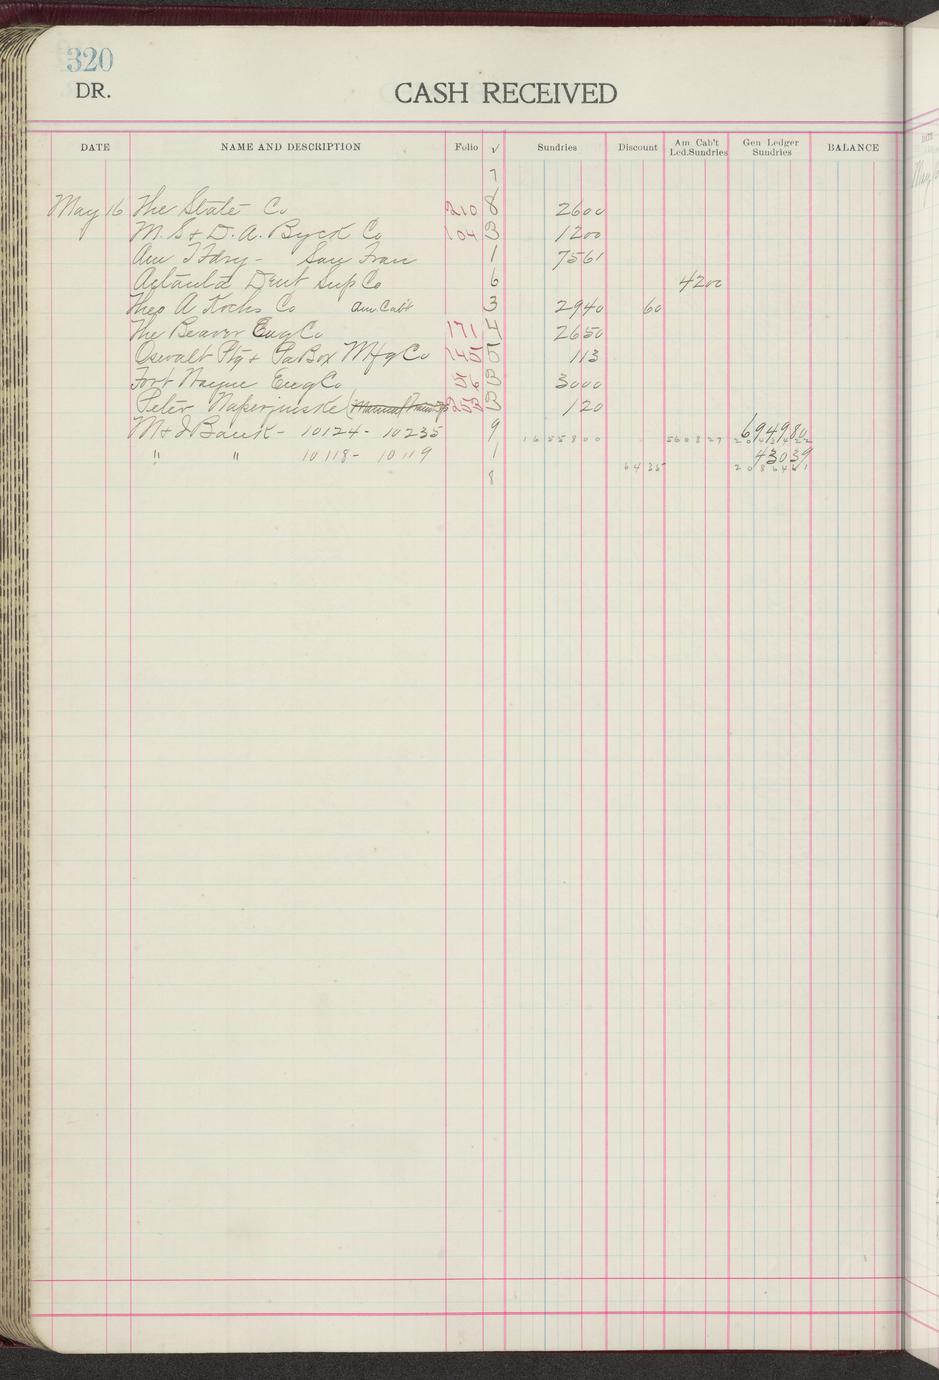 320
DR. CASH RECEIVED
DATE NAME AND DESCRIPTION Folio √ Sundries Discount Am Cab't Led.Sundries Gen Ledger Sundries BALANCE
7
May 16 The State Co 210 8 2600
M. S & D. A. Byck Co 104 3 1200
Am T Fdry - San Fran 1 7561
Dent Sup Co 6 4200
Theo A Kochs Co Am. Cab't 3 2940 60
The Beaver Eng Co 171 4 2650
Oswalt Ptg & Pa Box Mfg Co 145 5 113
Fort Wayne Eng Co 56 3 3000
Peter 253 3 120
M & I Bank - 10124 - 10235 9 1655800 560827 694980
" " 10118 - 10119 1 6435 43039
2086461
8